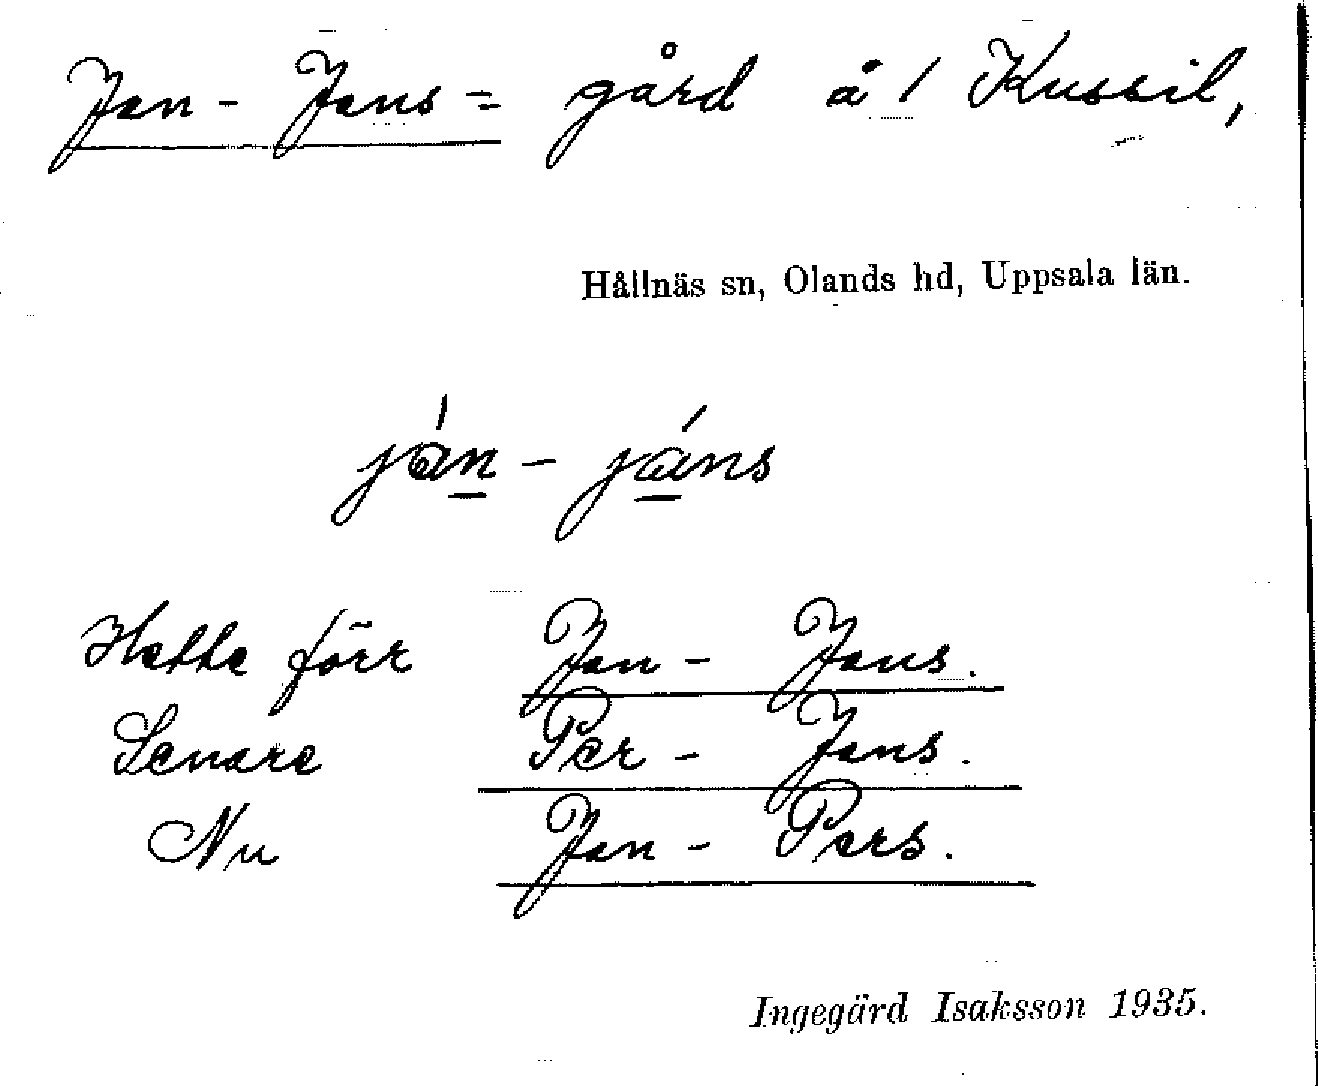 Jan-Jans= gård å 1 Kussil,
Hållnäs sn, Olands hd, Uppsala län.
ján - jáns
Hette förr Jan - Jans.
Senare Per - Jans.
Nu Jan - Pers.
Ingegärd Isaksson 1935.